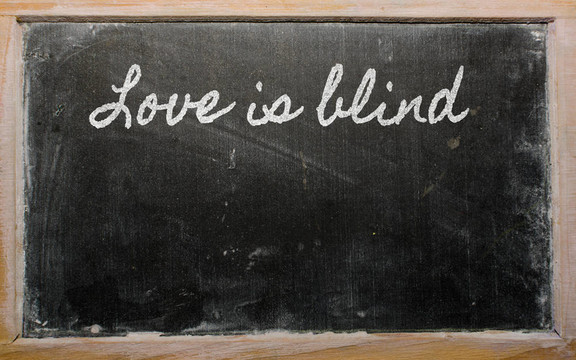 Love is blind